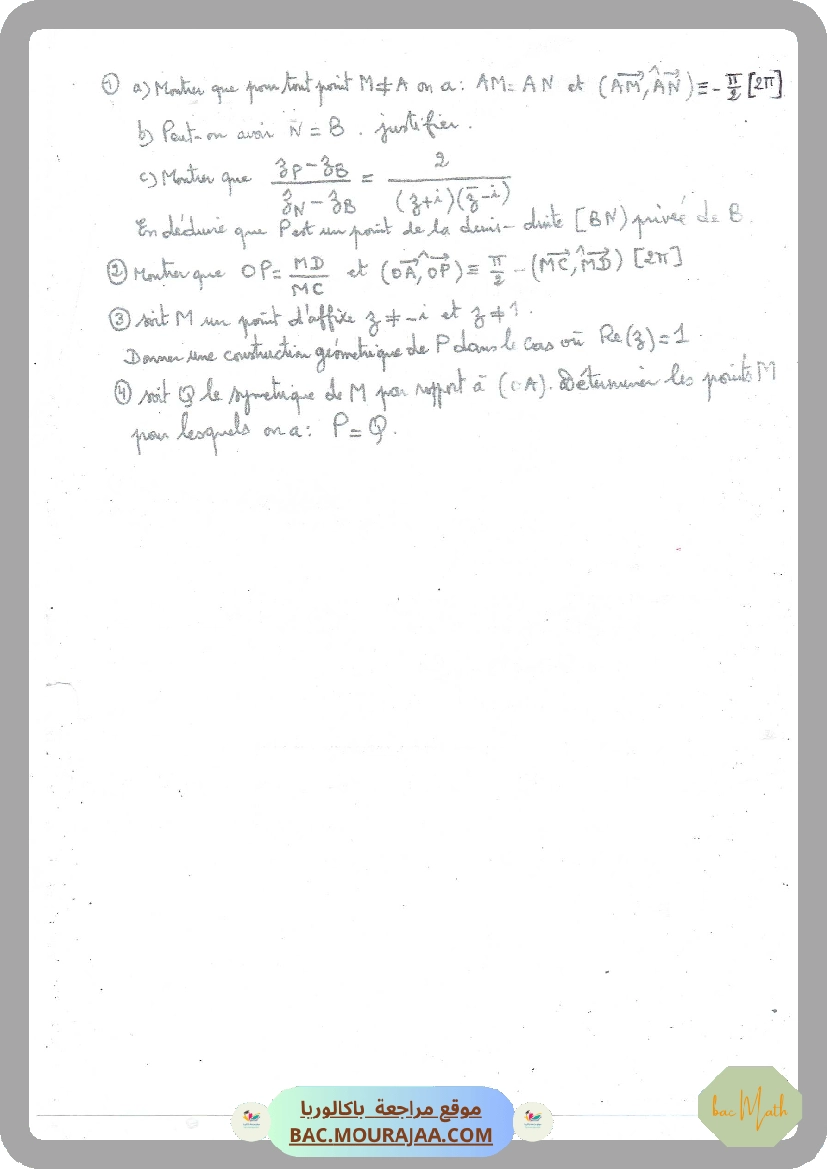 ① a) Montrer que pour tout point M ≠ A on a : AM = AN et (AM→,^AN→) ≡ -π/2 [2π]
b) Peut-on avoir N = B . justifier .
c) Montrer que (z_P - z_B)/(z_N - z_B) = 2/((z+i)(z̄-i))
En déduire que P est un point de la demi-droite [BN) privée de B.
② Montrer que OP = MD/MC et (OA→,^OP→) ≡ π/2 - (MC→,^MD→) [2π]
③ soit M un point d'affixe z ≠ -i et z ≠ 1.
Donner une construction géometrique de P dans le cas où Re(z) = 1.
④ soit Q le symetrique de M par rapport à (OA). Déterminer les points M
pour lesquels on a : P = Q.
موقع مراجعة باكالوريا
BAC.MOURAJAA.COM
bac Math